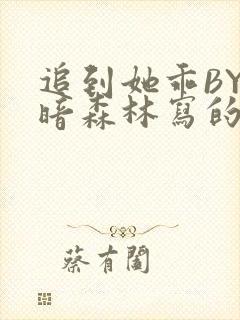 追到她乖BY
暗森林寫的
蔡有闔